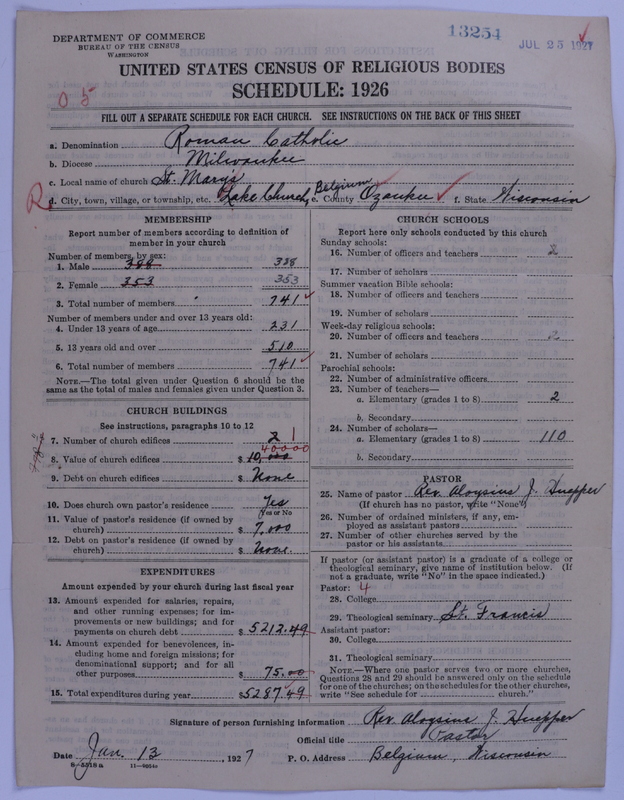 DEPARTMENT OF COMMERCE
BUREAU OF THE CENSUS
WASHINGTON
13254
JUL 25 1927
UNITED STATES CENSUS OF RELIGIOUS BODIES
SCHEDULE: 1926
05
FILL OUT A SEPARATE SCHEDULE FOR EACH CHURCH. SEE INSTRUCTIONS ON THE BACK OF THIS SHEET
a. Denomination Roman Catholic
b. Diocese Milwaukee
c. Local name of church St. Mary's
R d. City, town, village, or township, etc. Lake Church, Belgium e. County Ozaukee f. State Wisconsin
MEMBERSHIP
Report number of members according to definition of
member in your church
Number of members, by sex:
1. Male 388 388
2. Female 353 353
3. Total number of members 741
Number of members under and over 13 years old:
4. Under 13 years of age 231
5. 13 years old and over 510
6. Total number of members 741
NOTE.—The total given under Question 6 should be the
same as the total of males and females given under Question 3.
CHURCH BUILDINGS
See instructions, paragraphs 10 to 12
7. Number of church edifices 2 1
40000
8. Value of church edifices $ 10,000
9. Debt on church edifices $ None
10. Does church own pastor's residence Yes
(Yes or No
11. Value of pastor's residence (if owned by
church) $ 7,000
12. Debt on pastor's residence (if owned by
church) $ None.
EXPENDITURES
Amount expended by your church during last fiscal year
13. Amount expended for salaries, repairs,
and other running expenses; for im-
provements or new buildings; and for
payments on church debt $ 5212.49
14. Amount expended for benevolences, in-
cluding home and foreign missions; for
denominational support; and for all
other purposes $ 75.00
15. Total expenditures during year $ 5287.49
CHURCH SCHOOLS
Report here only schools conducted by this church
Sunday schools:
16. Number of officers and teachers 2
17. Number of scholars
Summer vacation Bible schools:
18. Number of officers and teachers
19. Number of scholars
Week-day religious schools:
20. Number of officers and teachers 2
21. Number of scholars
Parochial schools:
22. Number of administrative officers
23. Number of teachers—
a. Elementary (grades 1 to 8) 2
b. Secondary
24. Number of scholars—
a. Elementary (grades 1 to 8) 110
b. Secondary
PASTOR
25. Name of pastor Rev. Aloysius J. Huepper
(If church has no pastor, write "None")
26. Number of ordained ministers, if any, em-
ployed as assistant pastors
27. Number of other churches served by the
pastor or his assistants
If pastor (or assistant pastor) is a graduate of a college or
theological seminary, give name of institution below. (If
not a graduate, write "No" in the space indicated.)
Pastor: 4
28. College
29. Theological seminary St. Francis
Assistant pastor:
30. College
31. Theological seminary
NOTE.—Where one pastor serves two or more churches,
Questions 28 and 29 should be answered only on the schedule
for one of the churches; on the schedules for the other churches,
write "See schedule for church."
Signature of person furnishing information Rev. Aloysius J. Huepper
Official title Pastor
Date Jan. 13, 1927 P. O. Address Belgium, Wisconsin